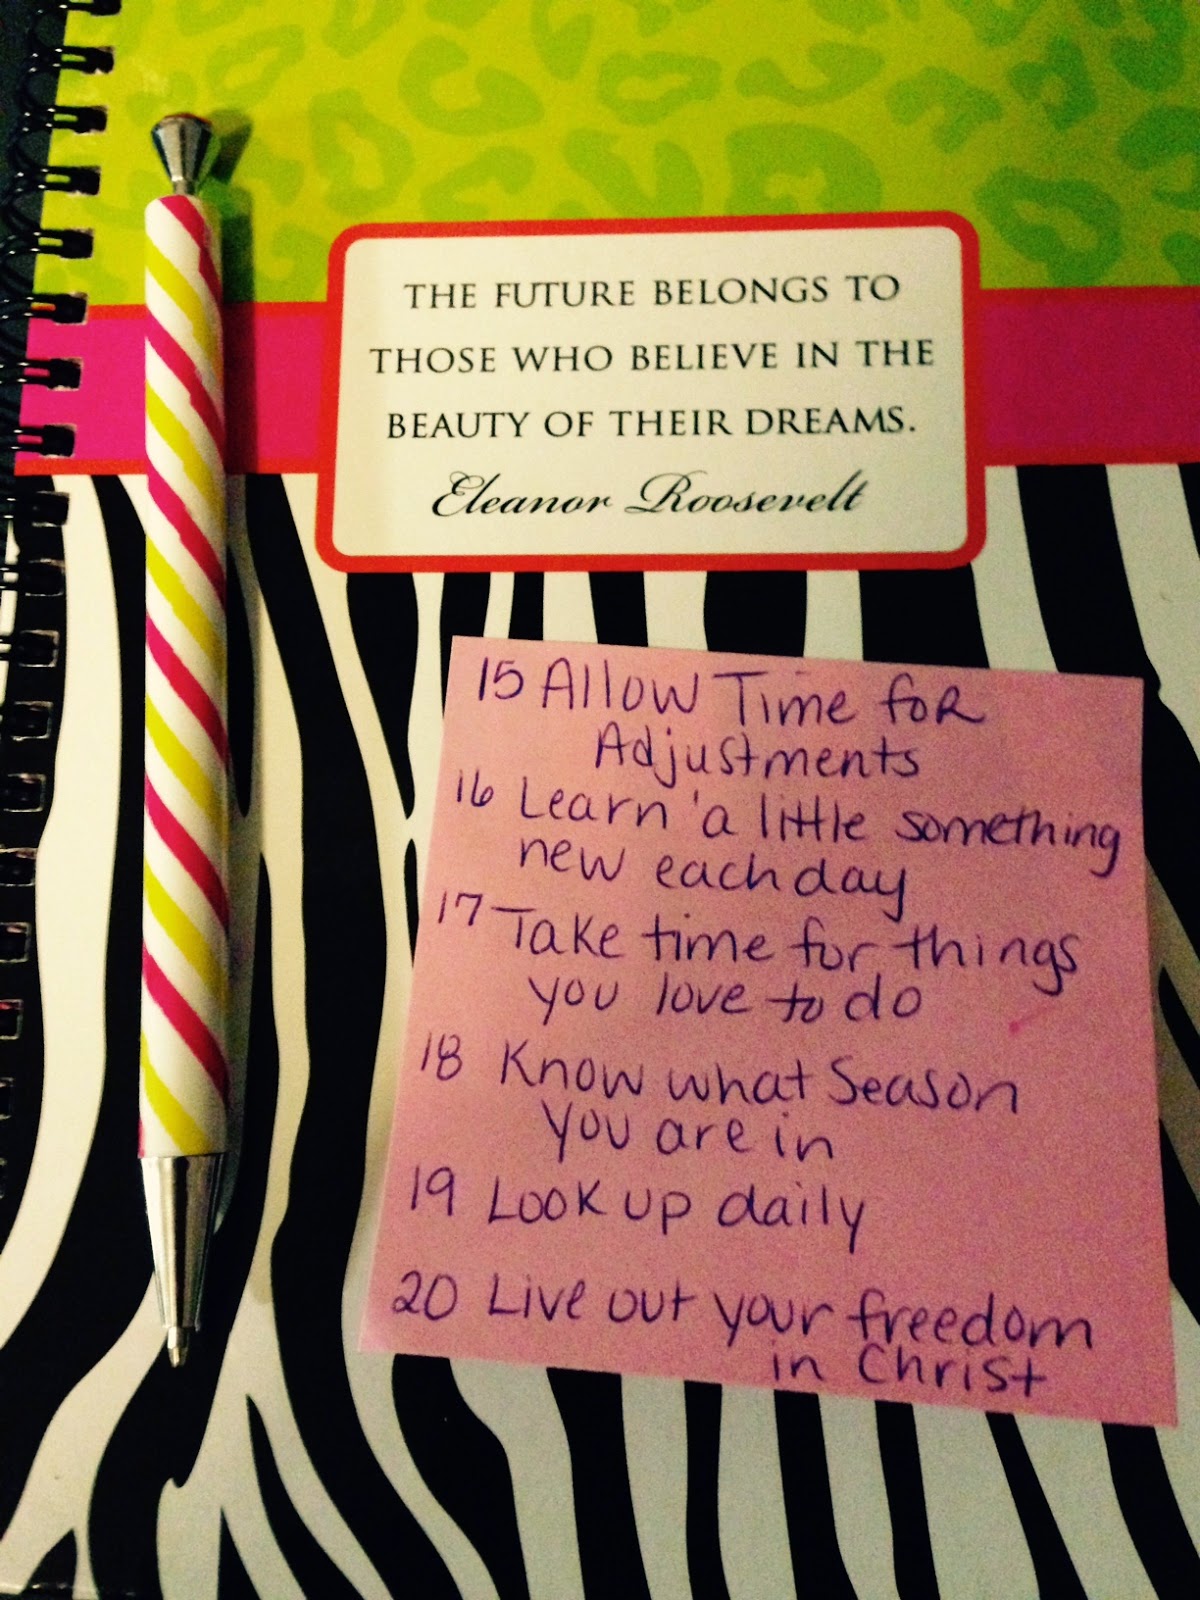 THE FUTURE BELONGS TO
THOSE WHO BELIEVE IN THE
BEAUTY OF THEIR DREAMS.
Eleanor Roosevelt
15 Allow Time for
Adjustments
16 Learn 'a little something
new each day
17 Take time for things
you love to do
18 Know what Season
you are in
19 Look up daily
20 Live out your freedom
in Christ